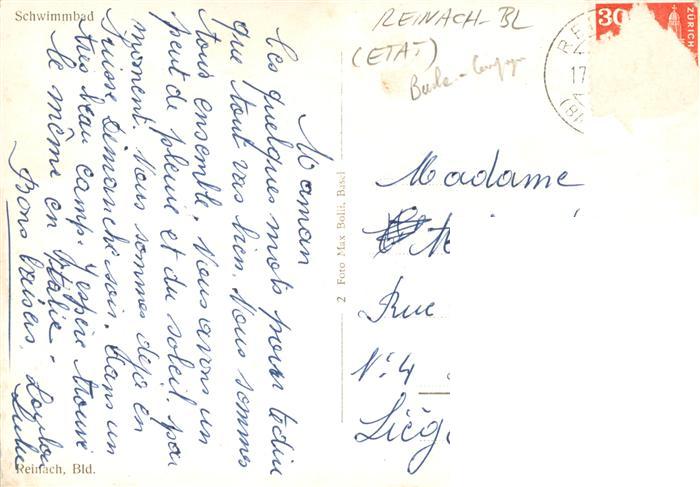 Schwimmbad
Maman
Ces quelques mots pour te dire
que tout vas bien. Nous sommes
tous ensemble. Nous avons un
peut de pleuie et du soleil. par
moment. Nous sommes dejà en
Suisse Dimanche soir. dans un
très beau camp. J'espère trouvé
le même en Italie -
Bons baisers.
Reinach, Bld.
2 Foto Max Bolli, Basel
REINACH-BL
(ETAT)
30
ZÜRICH
17
Madame
Rue
N° 4
Liég